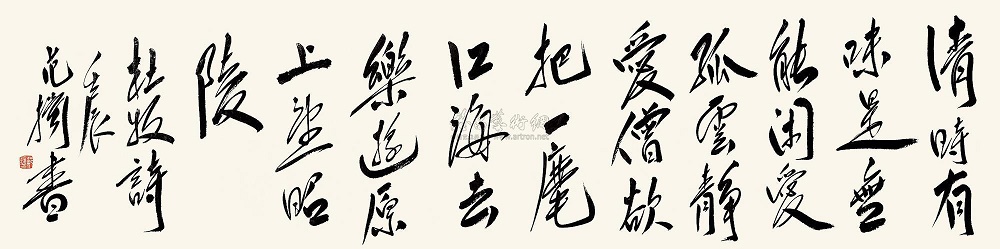 清時有
味是無
能閑愛
孤雲靜
愛僧欲
把一麾
江海去
樂遊原
上望昭
陵
杜牧詩
壬辰
范擴書